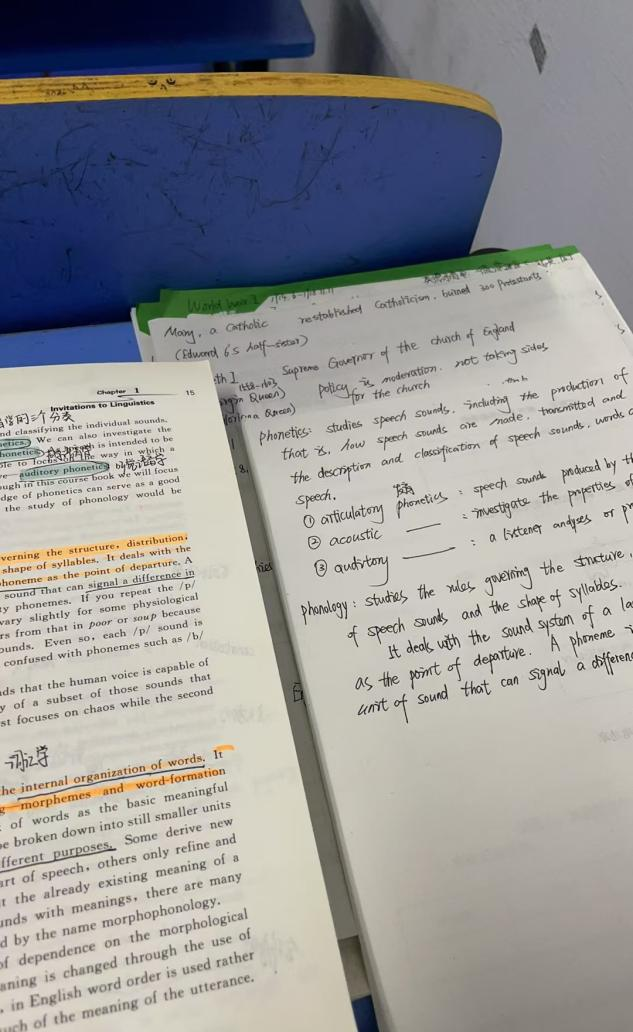 Chapter 1
15
Invitations to Linguistics
nd classifying the individual sounds.
netics. We can also investigate the
honetics is intended to be
le to focus the way in which a
auditory phonetics
ough in this course book we will focus
dge of phonetics can serve as a good
the study of phonology would be
verning the structure, distribution,
shape of syllables. It deals with the
phoneme as the point of departure. A
sound that can signal a difference in
ty phonemes. If you repeat the /p/
vary slightly for some physiological
rs from that in poor or soup because
ounds. Even so, each /p/ sound is
confused with phonemes such as /b/
nds that the human voice is capable of
y of a subset of those sounds that
st focuses on chaos while the second
词汇学
he internal organization of words. It
g—morphemes and word-formation
t of words as the basic meaningful
be broken down into still smaller units
fferent purposes. Some derive new
art of speech, others only refine and
t the already existing meaning of a
unds with meanings, there are many
d by the name morphophonology.
of dependence on the morphological
aning is changed through the use of
, in English word order is used rather
uch of the meaning of the utterance.
World War I
Mary, a Catholic restablished Catholicism. burned 300 Protestants.
(Edward 6's half-sister)
th I Supreme Governor of the church of England
Policy is moderation. not taking sides
for the church
phonetics: studies speech sounds, including the production of
that is, how speech sounds are made, transmitted and
the description and classification of speech sounds, words
speech.
① articulatory phonetics : speech sounds produced by th
② acoustic —— : investigate the properties of
③ auditory —— : a listener analyses or pr
phonology : studies the rules governing the structure,
of speech sounds and the shape of syllables.
It deals with the sound system of a la
as the point of departure. A phoneme i
unit of sound that can signal a differenc